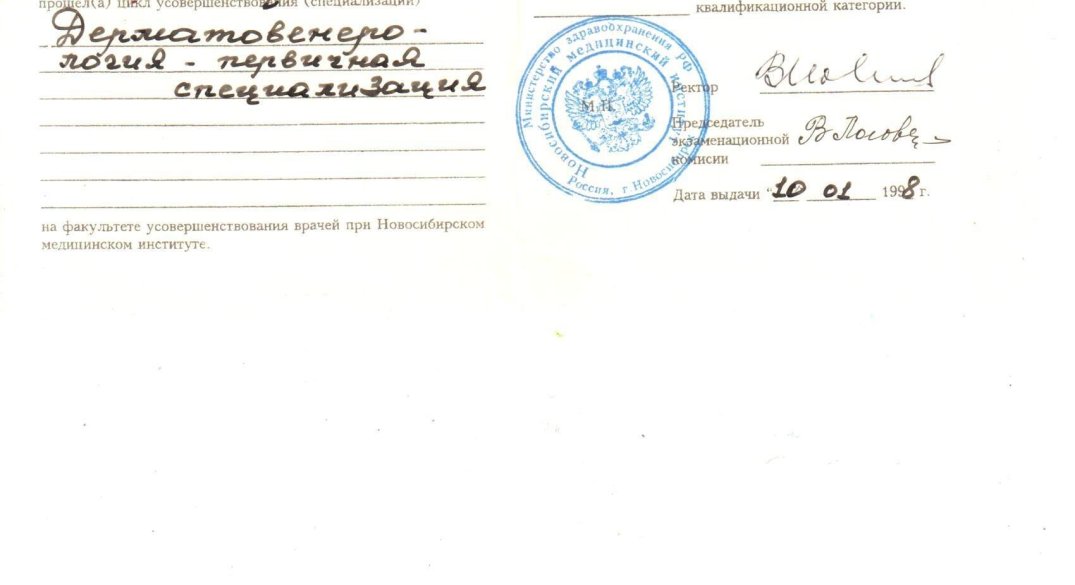 прошел(а) цикл усовершенствования (специализации)
Дерматовенеро-
логия - первичная
специализация
на факультете усовершенствования врачей при Новосибирском
медицинском институте.
квалификационной категории.
Министерство здравоохранения РФ
Новосибирский медицинский институт
Россия, г Новосибирск
М.П.
Ректор
Председатель
экзаменационной
комисии
Дата выдачи "10 01 1998 г.